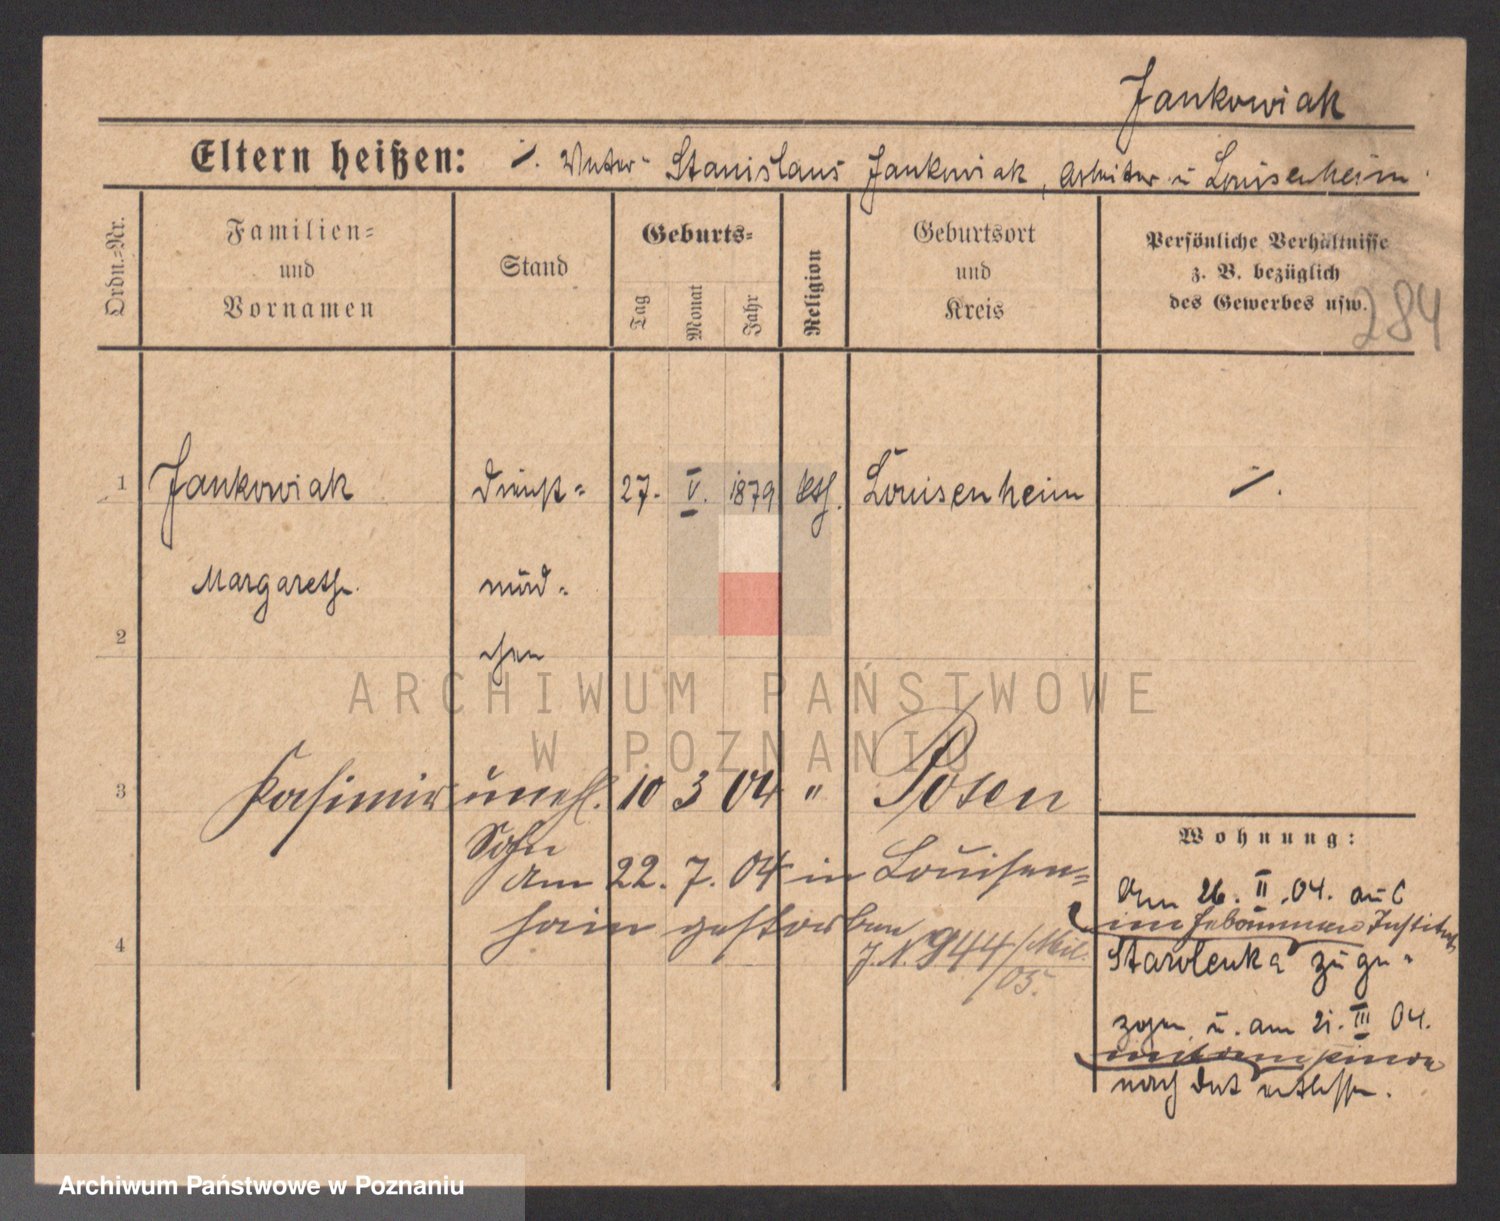 Jankowiak
Eltern heißen: ·/. Vater Stanislaus Jankowiak, Arbeiter u Louisenheim
Ordn.=Nr.
Familien=
und
Vornamen
Stand
Geburts=
Tag
Monat
Jahr
Religion
Geburtsort
und
Kreis
Persönliche Verhältnisse
z. B. bezüglich
des Gewerbes usw.
284
1 Jankowiak Dienst= 27. V. 1879 kth. Louisenheim ·/.
Margareth. mäd=
2 chen
ARCHIWUM PAŃSTWOWE
W POZNANIU
3 Kasimir unehl. 10 3 04 " Posen
Sohn
am 22. 7. 04 in Louisen=
4 hain gestorben
J.N. 944/Mil.
/05.
Wohnung:
Am 26. II. 04. aus
im Hebammen Institut
Starolenka zuge=
zogen u. am 21. III 04.
nach dort entlassen.
Archiwum Państwowe w Poznaniu